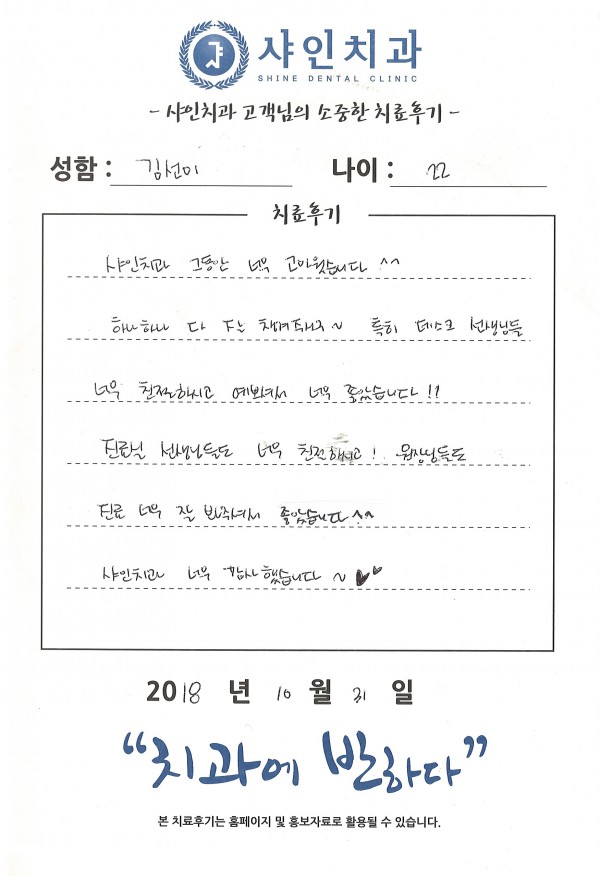 샤인치과
SHINE DENTAL CLINIC
- 샤인치과 고객님의 소중한 치료후기 -
성함 : 김선미 나이 : 22
치료후기
샤인치과 그동안 너무 고마웠습니다 ^^
하나하나 다 챙겨주시구~ 특히 데스크 선생님들
너무 친절하시고 예쁘셔서 너무 좋았습니다!!
진료실 선생님들도 너무 친절하시고! 원장님들도
진료 너무 잘 봐주셔서 좋았습니다^^
샤인치과 너무 감사했습니다 ~ ♥♥
2018 년 10 월 31 일
“치과에 반하다”
본 치료후기는 홈페이지 및 홍보자료로 활용될 수 있습니다.